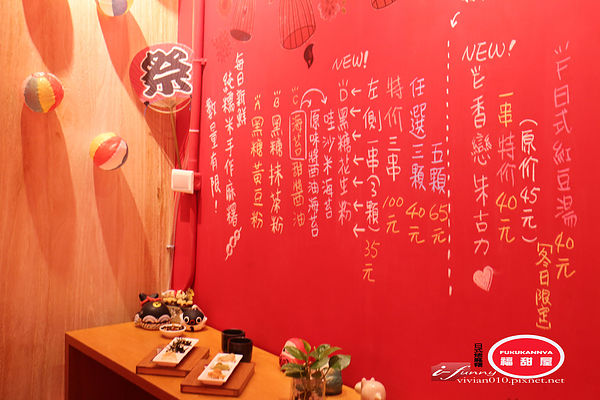 F 日式紅豆湯 40元
(冬日限定)
NEW!
E 香戀朱古力
一串特价 40元
(原价45元)
任選三顆 40元
五顆 65元
特价三串 100元
左側一串(3顆) 35元
NEW!
D 黑糖花生粉
哇沙米海苔
原味醬西油海苔
C 海苔甜醬西油
B 黑糖抹茶粉
A 黑糖黃豆粉
每日新鮮
純糯米手作麻糬
數量有限!
祭
FUKUKANNYA
福甜屋
vivian010.pixnet.net